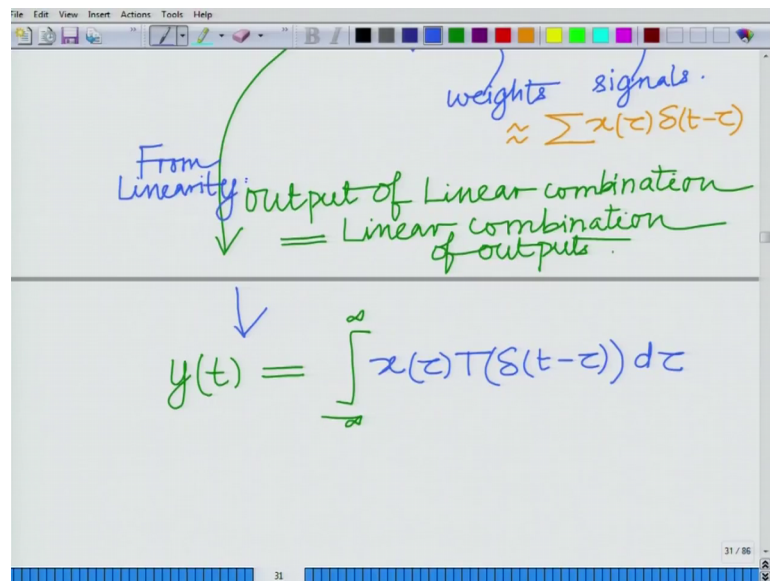 File Edit View Insert Actions Tools Help
B I
weights signals.
≈ ∑ x(τ) δ(t-τ)
From
Linearity:
output of Linear combination
= Linear combination
of outputs.
y(t) = ∫_{-∞}^{∞} x(τ) T(δ(t-τ)) dτ
31 / 86
31